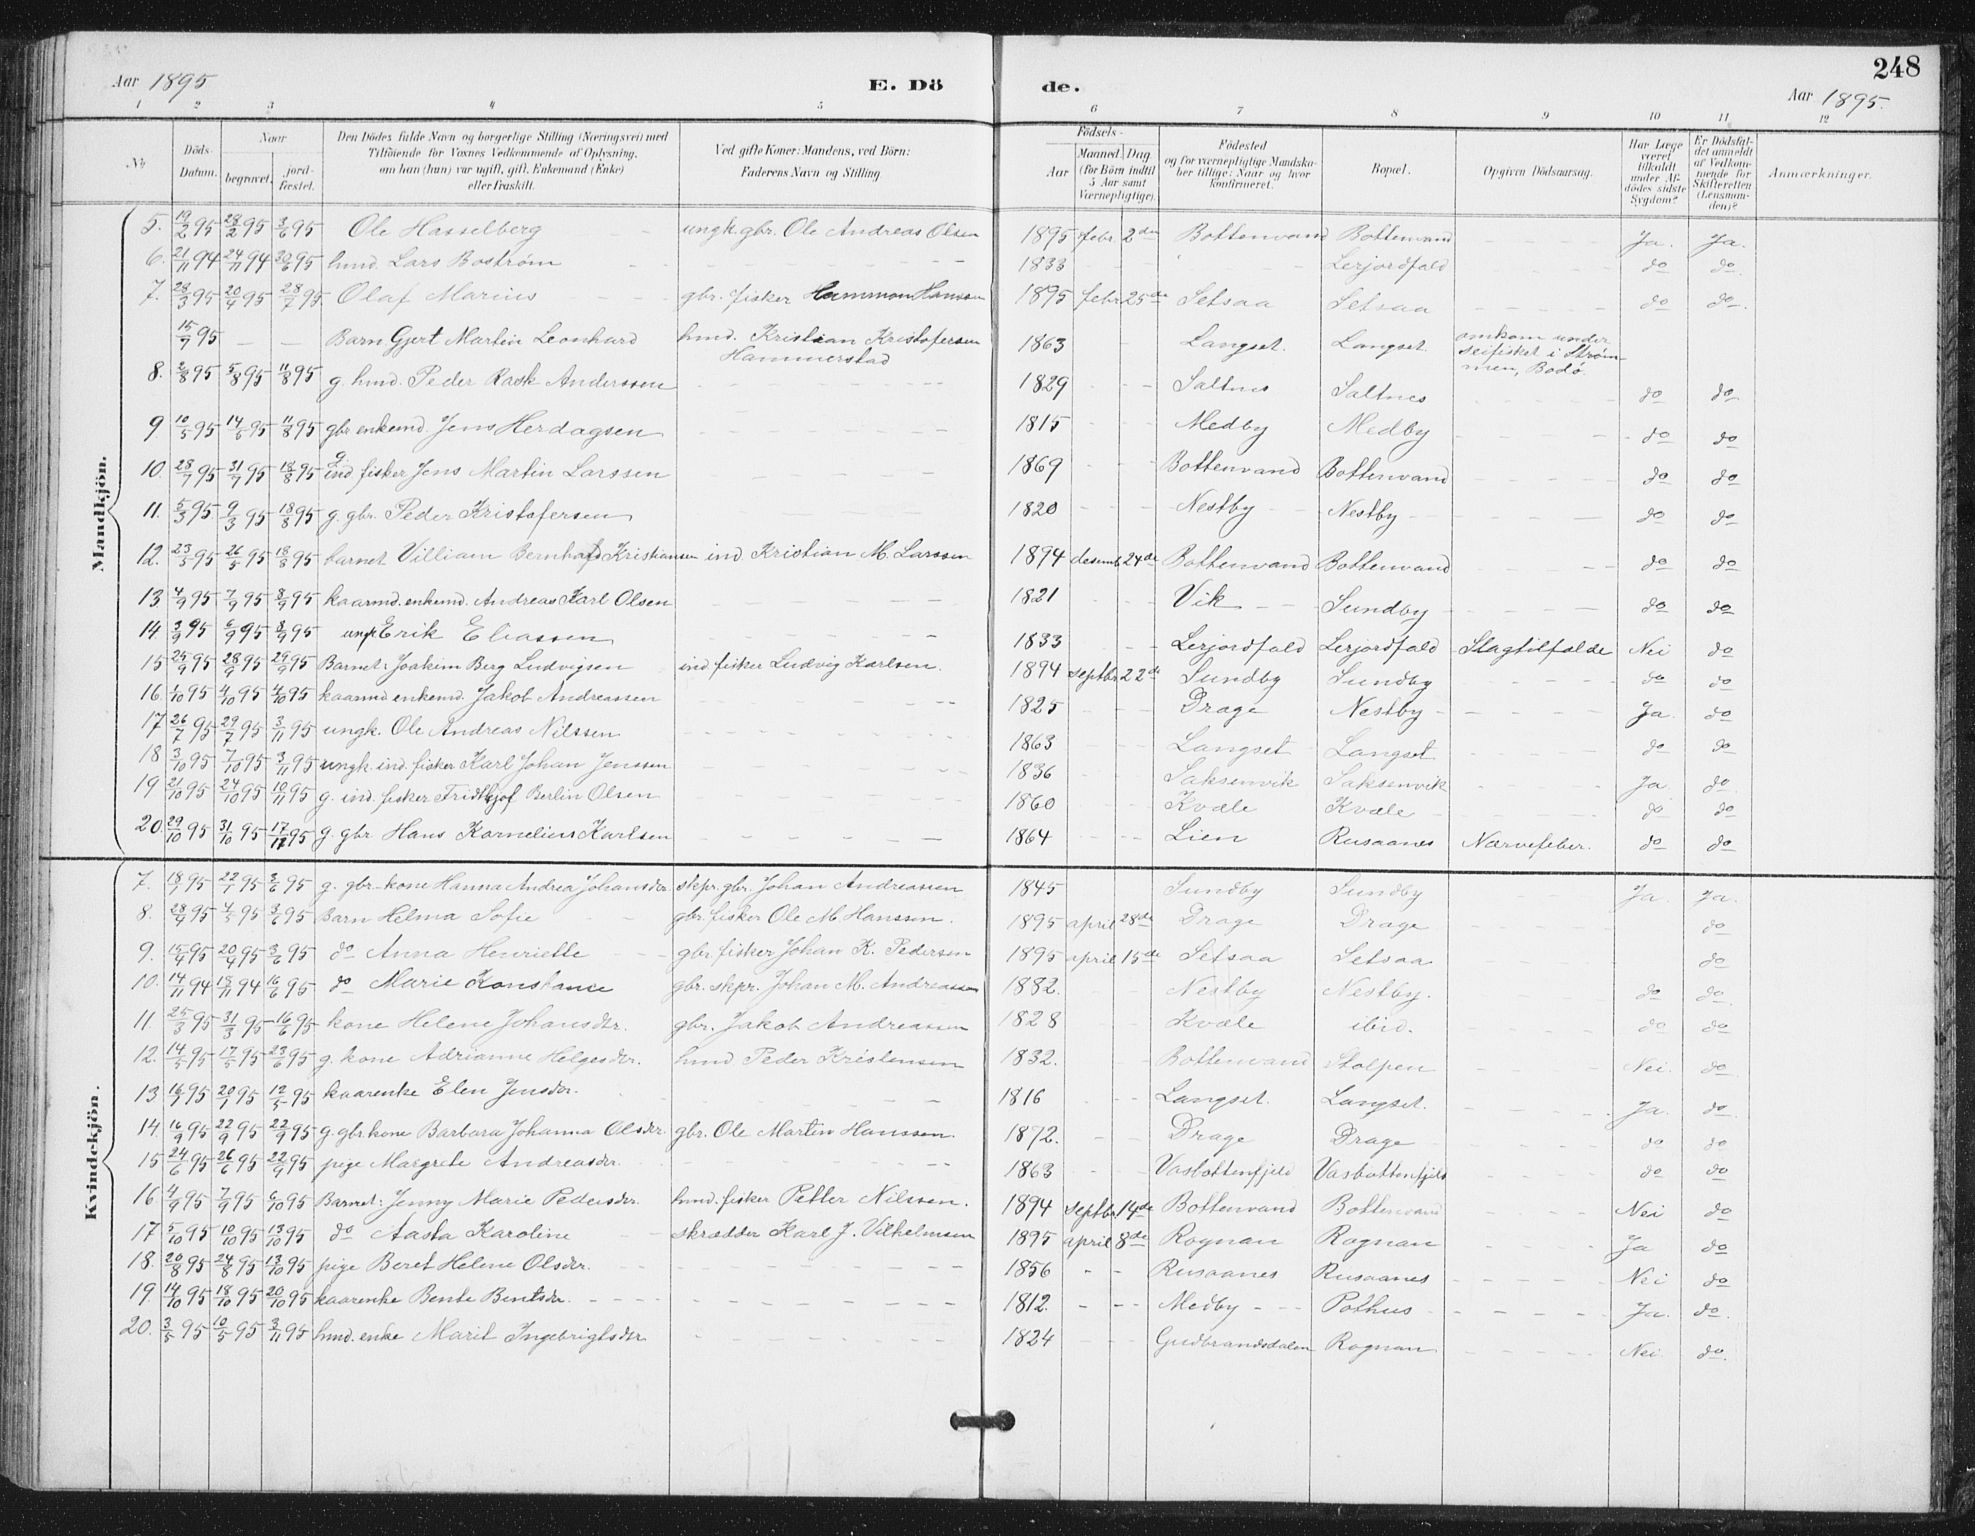 248
Aar 1895 E. Dö de. Aar 1895.
1 2 3 4 5 6 7 8 9 10 11 12
No Döds-Datum. Naar begravet. jord-fæstet. Den Dödes fulde Navn og borgerlige Stilling (Næringsvei) med Tilföiende for Voxnes Vedkommende af Oplysning, om han (hun) var ugift, gift, Enkemand (Enke) eller fraskilt. Ved gifte Koner: Mandens, ved Börn: Faderens Navn og Stilling. Födsels- Aar Maaned. Dag (for Börn indtil 5 Aar samt Værnepligtige). Födested og for værnepligtige Mandskaber tillige: Naar og hvor konfirmeret. Bopæl. Opgiven Dödsaarsag. Har Læge været tilkaldt under Afdödes sidste Sygdom? Er Dödsfaldet anmeldt af Vedkommende for Skifteretten (Lensmanden)? Anmærkninger.
Mandkjön.
5. 19/2 95 28/2 95 3/6 95 Ole Hasselberg ungk. gbr. Ole Andreas Olsen 1895 febr. 2den Bottenvand Bottenvand Ja. Ja.
6. 21/11 94 24/11 94 30/6 95 hmd. Lars Boström 1833 Lerjordfald do do
7. 28/3 95 20/4 95 28/7 95 Olaf Marius gbr. fisker Hammon Hansen 1895 febr 25de Setsaa Setsaa do do
15/7 95 Barn Gjert Martin Leonhard hmd. Kristian Kristofersen Hammerstad 1863 Langset. Langset. omkom under seifisket i Strømmen, Bodø.
8. 2/8 95 5/8 95 11/8 95 g. hmd. Peder Rask Anderssen 1829 Saltnes Saltnes do do
9 10/5 95 14/5 95 11/8 95 gbr enkemd Jens Herdagsen 1815 Medby Medby do do
10. 28/7 95 31/7 95 18/8 95 g. ind fisker Jens Martin Larssen 1869 Bottenvand Bottenvand do do
11. 5/3 95 9/3 95 18/8 95 g. gbr. Peder Kristofersen 1820 Nestby Nestby do do
12. 23/5 95 26/5 95 18/8 95 barnet Villiam Bernhard Kristiansen ind Kristian M. Larssen 1894 desemb. 24de Bottenvand Bottenvand do do
13 4/9 95 7/9 95 8/9 95 kaarmd. enkemd. Andreas Karl Olsen 1821 Vik Sundby do do
14. 3/9 95 6/9 95 8/9 95 Erik Eliassen 1833 Lerjordfald Lerjordfald Slagtilfælde Nei do
15 25/9 95 28/9 95 29/9 95 Barnet: Joakim Berg Ludvigsen ind fisker Ludvig Karlsen. 1894 septbr 22de Sundby Sundby do do
16 1/10 95 4/10 95 4/10 95 kaarmd enkemd. Jakob Andreassen 1825 Drage Nestby Ja. do
17 26/7 95 29/7 95 3/11 95 ungk. Ole Andreas Nilssen 1863 Langset Langset do do
18 3/10 95 7/10 95 3/11 95 ungk. ind. fisker Karl Johan Jenssen 1836 Saksenvik Saksenvik Ja do
19 21/10 95 24/10 95 10/11 95 g. ind. fisker Fridthjof Berlin Olsen 1860 Kvæle Kvæle do do
20. 29/10 95 31/10 95 17/11 95 g. gbr Hans Kornelius Karlsen 1864 Lien Rusaanes Nærvefeber. do do
Kvindekjön.
7. 18/1 95 22/1 95 3/6 95 g. gbr. kone Hanna Andrea Johansdtr. skpr. gbr. Johan Andreassen 1845 Sundby Sundby Ja. Ja.
8. 28/4 95 4/5 95 3/6 95 Barn Helma Sofie gbr. fisker Ole M. Hanssen. 1895 april 28de Drage Drage do
9. 15/4 95 20/4 95 3/6 95 do Anna Henriette gbr. fisker Johan K. Pedersen 1895 april 15de Setsaa Setsaa do
10. 14/11 94 18/11 94 16/6 95 do Marie Konstance gbr. skpr. Johan M. Andreassen 1882. Nestby Nestby. do do
11. 25/3 95 31/3 95 16/6 95 kone Helene Johansdtr. gbr. Jakob Andreassen 1828 Kvæle ibid. do do
12. 14/5 95 17/5 95 23/6 95 g. kone Adrianne Helgesdtr. hmd Peder Kristensen 1832. Bottenvand Stolpen Nei. do
13 16/1 95 20/1 95 12/5 95 kaarenke Elen Jensdtr. 1816 Langset. Langset. Ja. do
14. 16/9 95 22/9 95 22/9 95 g. gbr. kone Barbara Johanna Olsdtr. gbr. Ole Martin Hanssen. 1872. Drage Drage do do
15 24/6 95 26/6 95 22/9 95 pige Margrete Andreasdtr. 1863 Vasbottenfjeld Vasbottenfjeld do do
16 4/9 95 7/9 95 6/10 95 Barnet: Jenny Marie Pedersdtr. hmd. fisker Petter Nilssen. 1894 septbr. 14de Bottenvand Bottenvand Nei do
17 5/10 95 10/10 95 13/10 95 do Aasta Karoline skrædder Karl J. Vilhelmsen 1895 april 8de Rognan Rognan Ja do
18. 20/8 95 24/8 95 13/10 95 pige Beret Helene Olsdtr. 1856 Rusaanes Rusaanes Nei do
19. 14/10 95 18/10 95 20/10 95 kaarenke Bente Bentsdtr. 1812. Medby Pothus Ja. do.
20. 3/5 95 10/5 95 3/11 95 hmd. enke Marit Ingebrigtsdtr 1824 Gudbrandsdalen Rognan Nei. do.